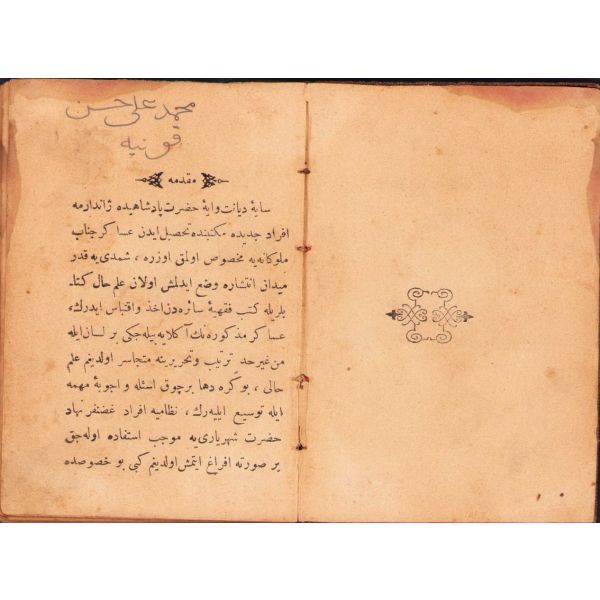 محمد علی حسن
قونیه
مقدمه
سایۀ دیانت‌وایۀ حضرت پادشاهیده ژاندارمه
افراد جدیده مکتبنده تحصیل ایدن عساکر جناب
ملوکانه‌یه مخصوص اولمق اوزره ، شمدی‌یه قدر
میدان انتشاره وضع ایدلمش اولان علم حال کتا-
بلریله کتب فقهیۀ سائره‌دن اخذ و اقتباس ایدرك،
عساکر مذکوره‌نك آکلایه‌بیله‌جکی بر لسان ایله
من غیر حد ترتیب و تحریرینه متجاسر اولدیغم علم
حالی ، بو کره دها برچوق اسئله و اجوبۀ مهمه
ایله توسیع ایلیه‌رك ، نظامیه افراد غضنفر نهاد
حضرت شهریاری‌یه موجب استفاده اوله‌جق
بر صورته افراغ ایتمش اولدیغم کبی بو خصوصده